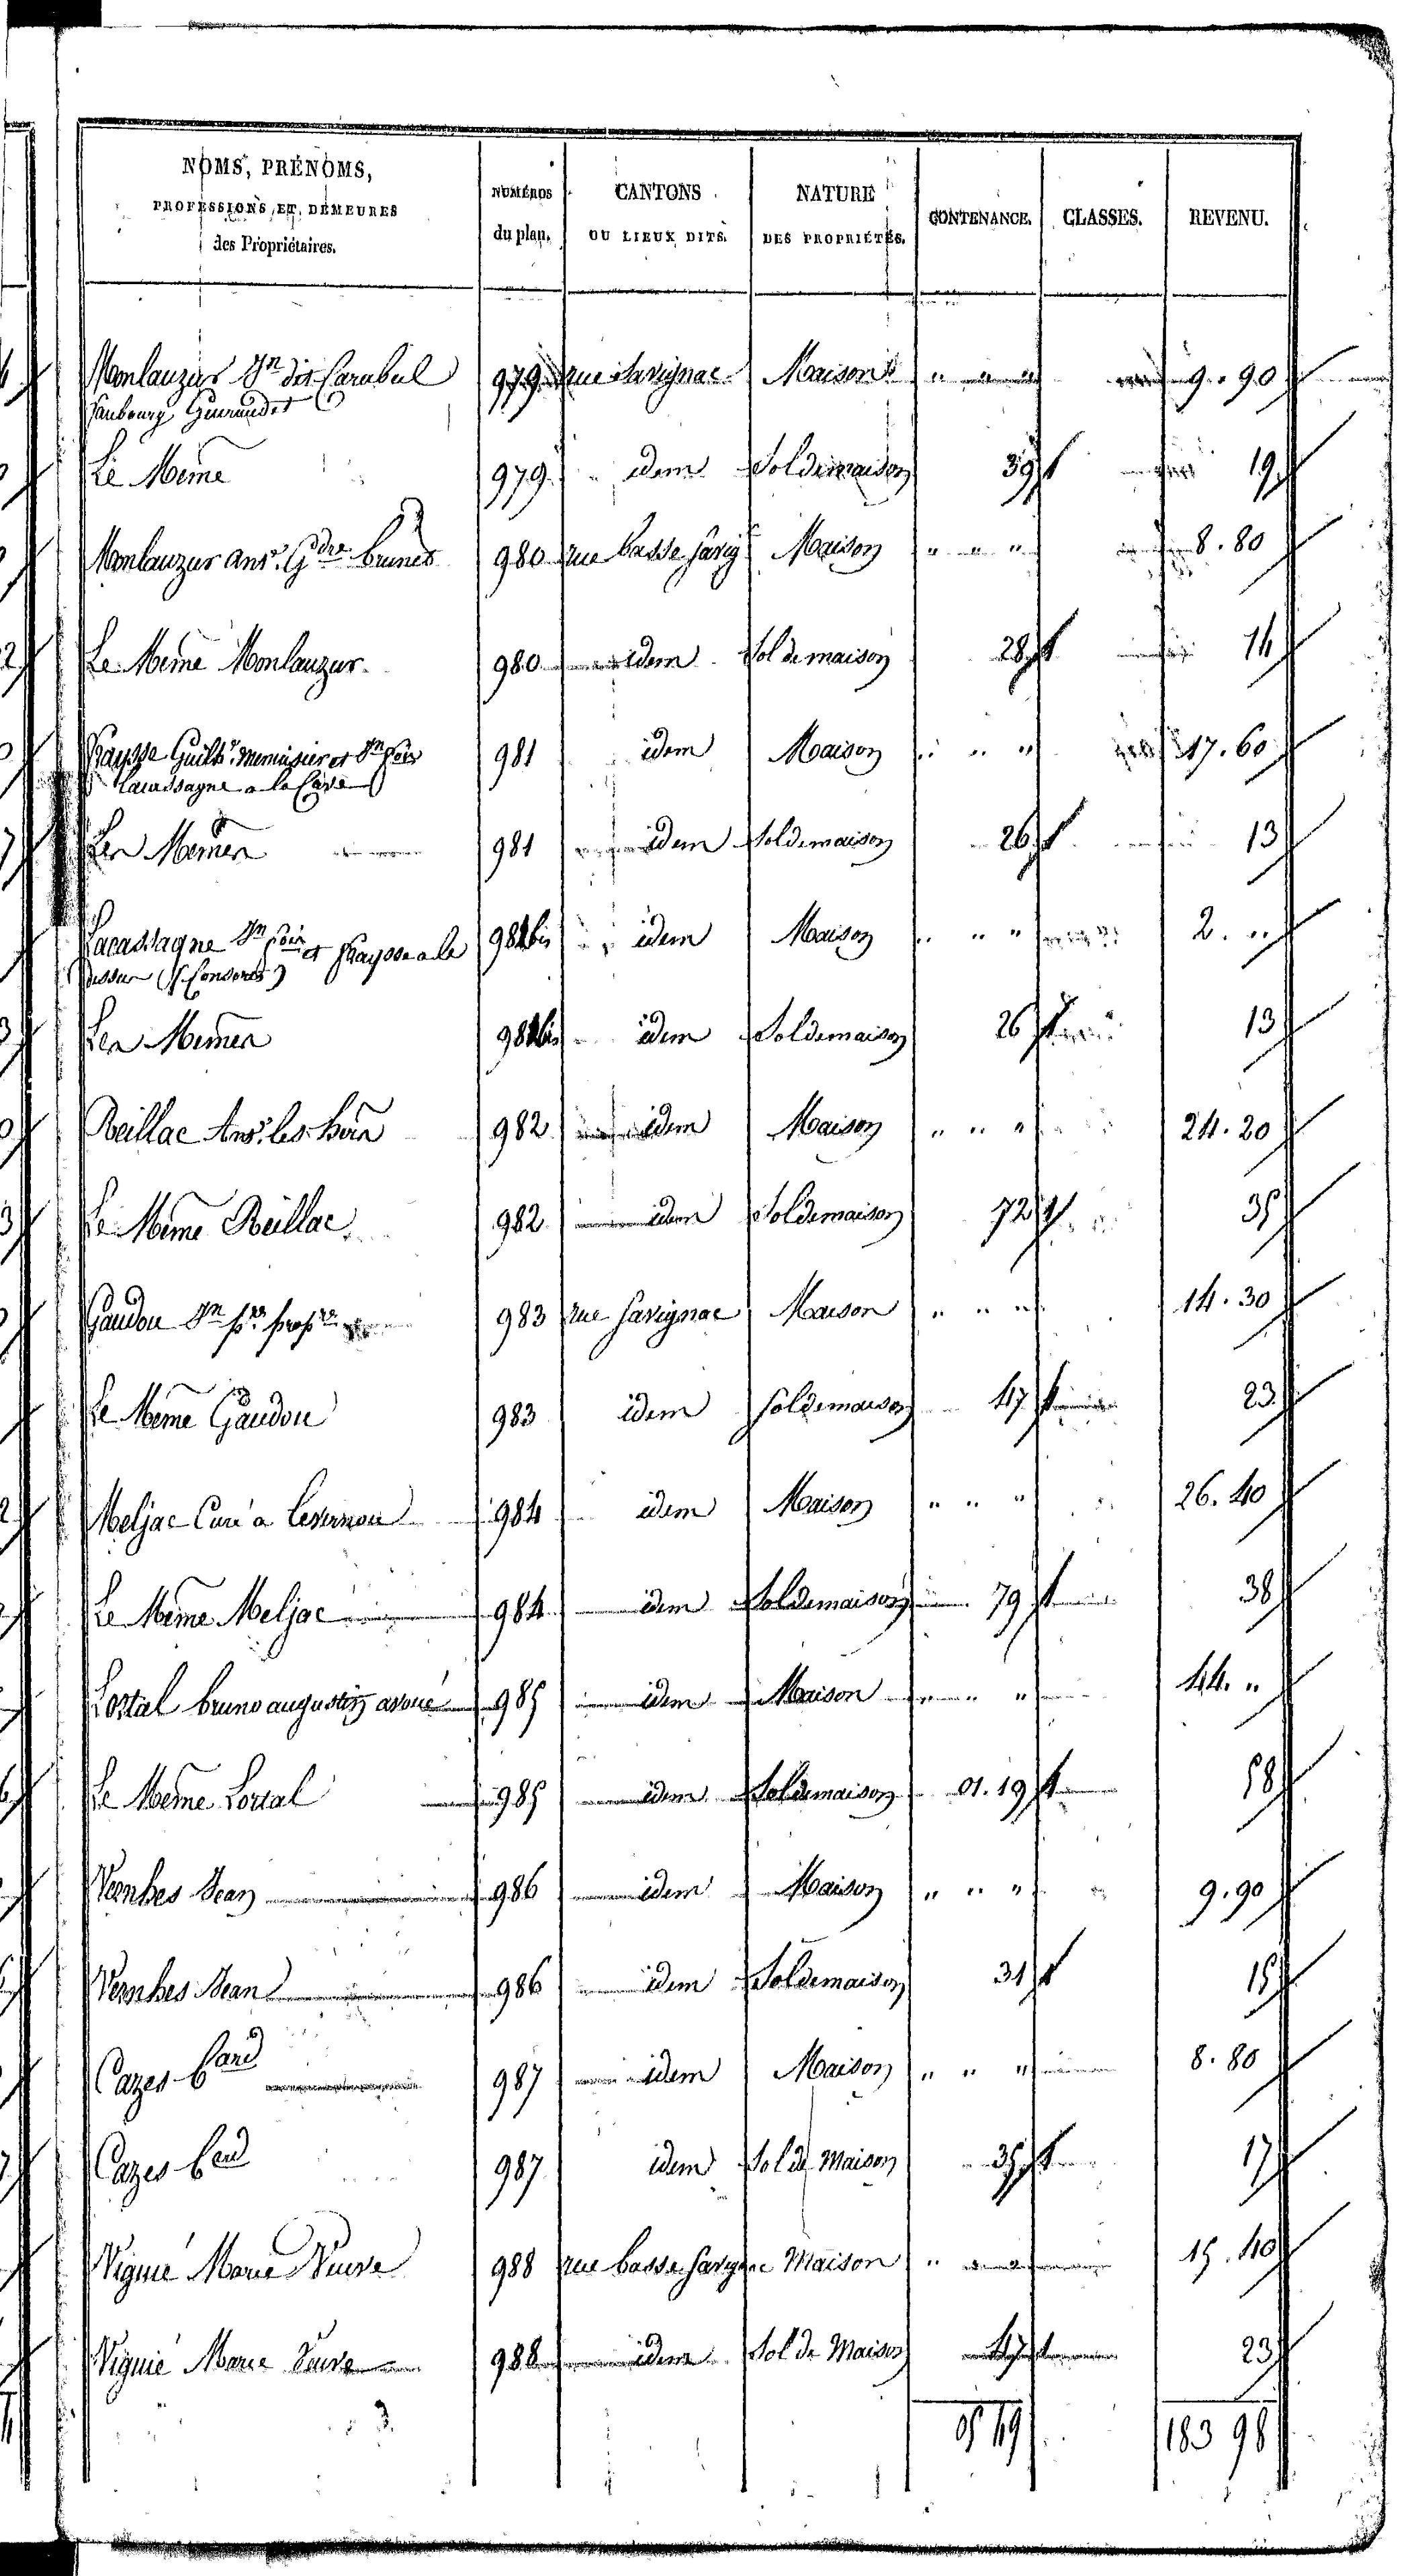 NOMS, PRÉNOMS,
PROFESSIONS, ET DEMEURES
des Propriétaires.
NUMÉROS
du plan.
CANTONS
OU LIEUX DITS.
NATURE
DES PROPRIÉTÉS.
CONTENANCE.
CLASSES.
REVENU.
Monlauzur Jn dit Carubel 979 rue Savignac Maison " " " 9. 90
faubourg Guiraudet
Le Meme 979 idem Sol de maison 39 1 19
Monlauzur Ant. Gdre brunet 980 rue basse Savig Maison " " " 8. 80
Le Meme Monlauzur 980 idem Sol de maison 28 1 14
Fraysse Guilh. menuisier et Jn Pre 981 idem Maison " " " 17. 60
Lacassagne a la Cave
Les Memes 981 idem Sol de maison 26 1 13
Lacassagne Jn Pre et Fraysse a le 981 bis idem Maison " " " 2. "
dessus (Consorts)
Les Memes 981 bis idem Sol de maison 26 1 13
Reillac Ant. les hers 982 idem Maison " " " 24. 20
Le Meme Reillac 982 idem Sol de maison 72 1 35
Gaudou Jn pre propre 983 rue Savignac Maison " " " 14. 30
Le Meme Gaudou 983 idem Sol de maison 47 1 23
Meljac Curé a 984 idem Maison " " " 26. 40
Le Meme Meljac 984 idem Sol de maison 79 1 38
Lortal bruno augustin avoué 985 idem Maison " " 44. "
Le Meme Lortal 985 idem Sol de maison 01. 19 1 58
Vernhes Jean 986 idem Maison " " " 9. 90
Vernhes Jean 986 idem Sol de maison 31 1 15
Cazes bard 987 idem Maison " " " 8. 80
Cazes bard 987 idem Sol de Maison 35 1 17
Viguié Marie Veuve 988 rue basse Savignac Maison " " " 15. 40
Viguié Marie Veuve 988 idem Sol de Maison 47 1 23
05 49 183 98